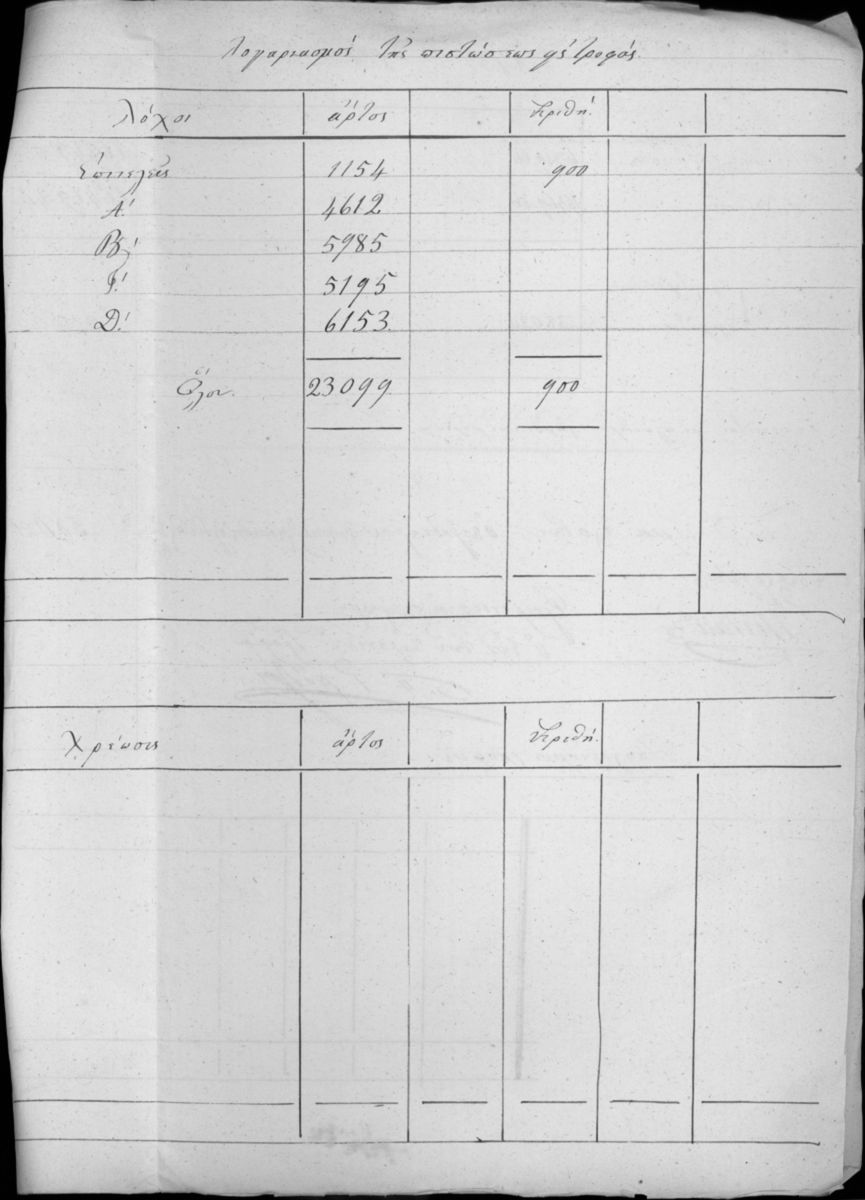 Λογαριασμός τῆς πιστώσεως εἰς τροφάς
Λόχοι ἄρτος κριθή.
Ἐπιτελεῖς 1154 900
Α! 4612
Β! 5985
Γ! 5195
Δ! 6153
Ὅλον. 23099 900
Χρέωσις ἄρτος κριθή.